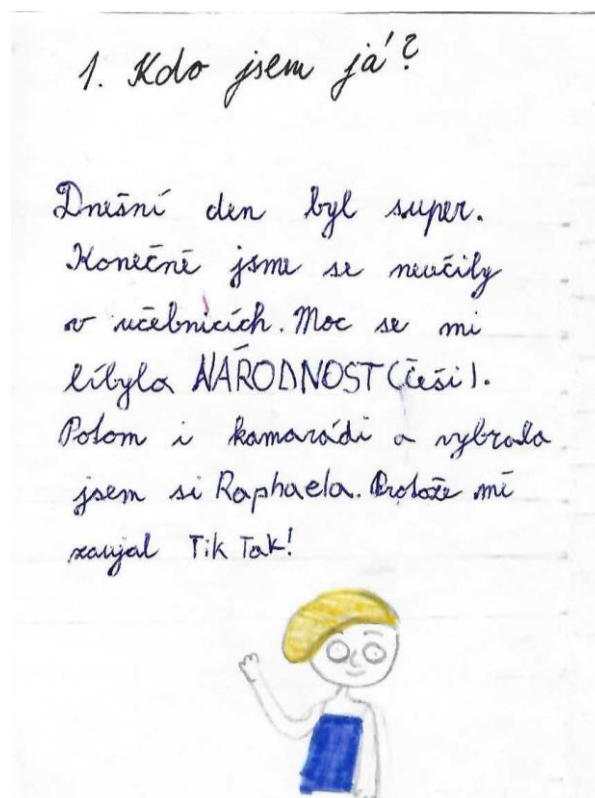 1. Kdo jsem já?
Dnešní den byl super.
Konečně jsme se neučily
v učebnicích. Moc se mi
líbyla NÁRODNOST (češi).
Potom i kamarádi a vybrala
jsem si Raphaela. Protože mě
zaujal Tik Tak!